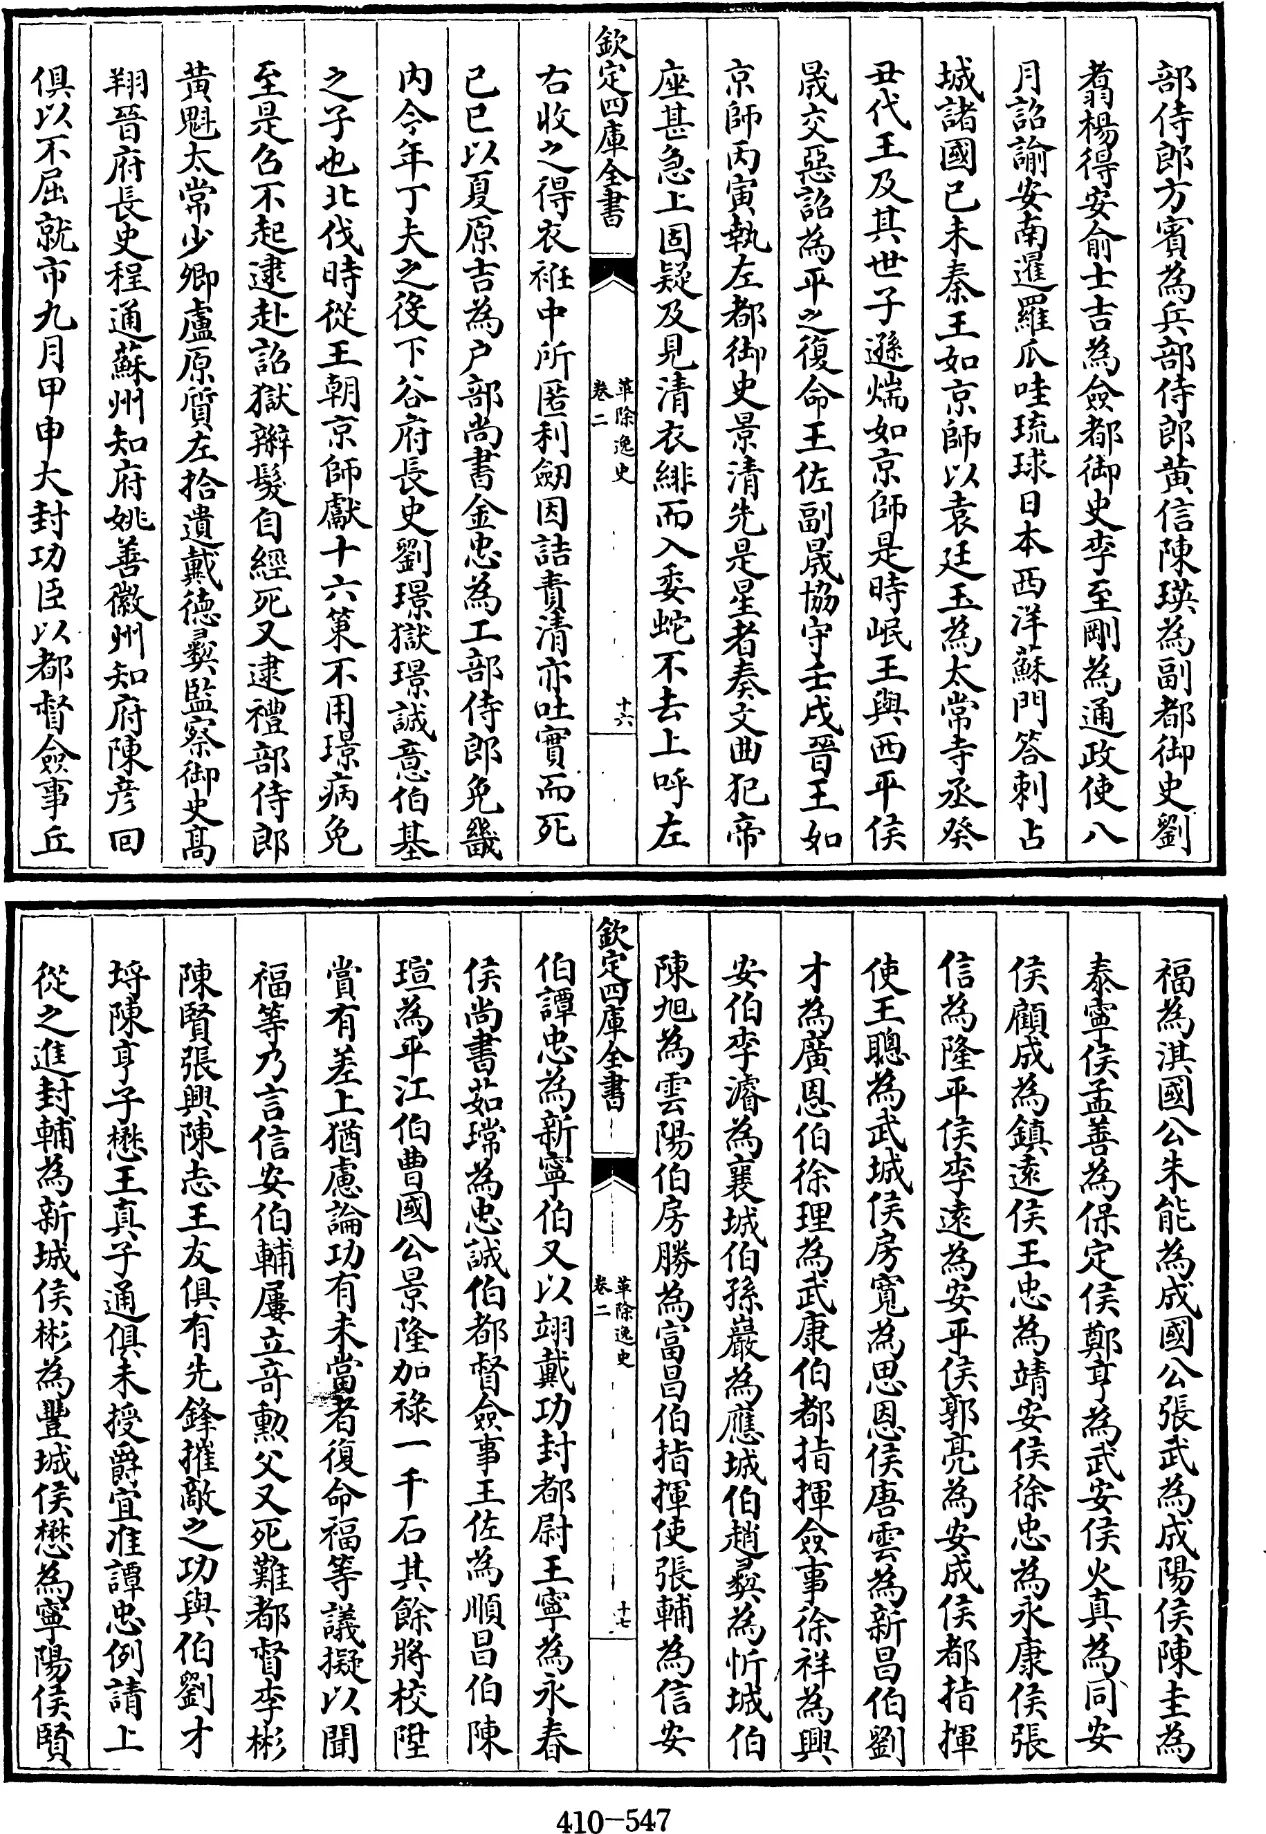 部侍郎方賓為兵部侍郎黃信陳瑛為副都御史劉
翥楊得安俞士吉為僉都御史李至剛為通政使八
月詔諭安南暹羅瓜哇琉球日本西洋蘇門答剌占
城諸國己未秦王如京師以袁廷玉為太常寺丞癸
丑代王及其世子遜煓如京師是時岷王與西平侯
晟交惡詔為平之復命王佐副晟協守壬戌晉王如
京師丙寅執左都御史景清先是星者奏文曲犯帝
座甚急上固疑及見清衣緋而入委蛇不去上呼左
欽定四庫全書
革除逸史
卷二
十六
右收之得衣袵中所匿利劒因詰責清亦吐實而死
己巳以夏原吉為戶部尚書金忠為工部侍郎免畿
內今年丁夫之役下谷府長史劉璟獄璟誠意伯基
之子也北伐時從王朝京師獻十六策不用璟病免
至是召不起逮赴詔獄辮髮自經死又逮禮部侍郎
黃魁太常少卿盧原質左拾遺戴德彞監察御史高
翔晉府長史程通蘇州知府姚善徽州知府陳彥回
俱以不屈就市九月甲申大封功臣以都督僉事丘
福為淇國公朱能為成國公張武為成陽侯陳圭為
泰寧侯孟善為保定侯鄭亨為武安侯火真為同安
侯顧成為鎮遠侯王忠為靖安侯徐忠為永康侯張
信為隆平侯李遠為安平侯郭亮為安成侯都指揮
使王聰為武城侯房寬為思恩侯唐雲為新昌伯劉
才為廣恩伯徐理為武康伯都指揮僉事徐祥為興
安伯李濬為襄城伯孫巖為應城伯趙彞為忻城伯
陳旭為雲陽伯房勝為富昌伯指揮使張輔為信安
欽定四庫全書
革除逸史
卷二
十七
伯譚忠為新寧伯又以翊戴功封都尉王寧為永春
侯尚書茹瑺為忠誠伯都督僉事王佐為順昌伯陳
瑄為平江伯曹國公景隆加祿一千石其餘將校陞
賞有差上猶慮論功有未當者復命福等議擬以聞
福等乃言信安伯輔屢立奇勳父又死難都督李彬
陳賢張興陳志王友俱有先鋒摧敵之功與伯劉才
埒陳亨子懋王真子通俱未授爵宜准譚忠例請上
從之進封輔為新城侯彬為豐城侯懋為寧陽侯賢
410-547